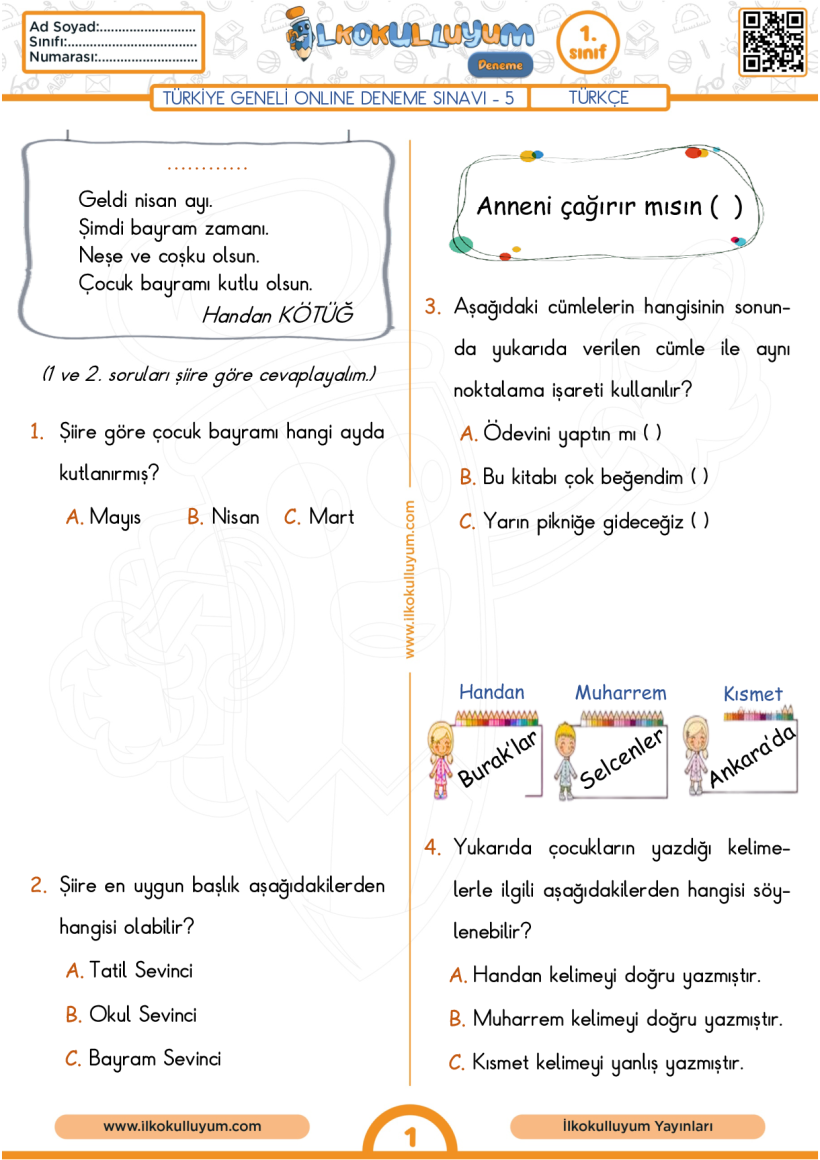 Ad Soyad:..........................
Sınıfı:...................................
Numarası:...........................
İLKOKULLUYUM
Deneme
1.
sınıf
TÜRKİYE GENELİ ONLINE DENEME SINAVI - 5
TÜRKÇE
............
Geldi nisan ayı.
Şimdi bayram zamanı.
Neşe ve coşku olsun.
Çocuk bayramı kutlu olsun.
Handan KÖTÜĞ
(1 ve 2. soruları şiire göre cevaplayalım.)
1. Şiire göre çocuk bayramı hangi ayda
kutlanırmış?
A. Mayıs B. Nisan C. Mart
2. Şiire en uygun başlık aşağıdakilerden
hangisi olabilir?
A. Tatil Sevinci
B. Okul Sevinci
C. Bayram Sevinci
www.ilkokulluyum.com
Anneni çağırır mısın ( )
3. Aşağıdaki cümlelerin hangisinin sonun-
da yukarıda verilen cümle ile aynı
noktalama işareti kullanılır?
A. Ödevini yaptın mı ( )
B. Bu kitabı çok beğendim ( )
C. Yarın pikniğe gideceğiz ( )
Handan Muharrem Kısmet
Burak'lar Selcenler Ankara'da
4. Yukarıda çocukların yazdığı kelime-
lerle ilgili aşağıdakilerden hangisi söy-
lenebilir?
A. Handan kelimeyi doğru yazmıştır.
B. Muharrem kelimeyi doğru yazmıştır.
C. Kısmet kelimeyi yanlış yazmıştır.
www.ilkokulluyum.com
1
İlkokulluyum Yayınları